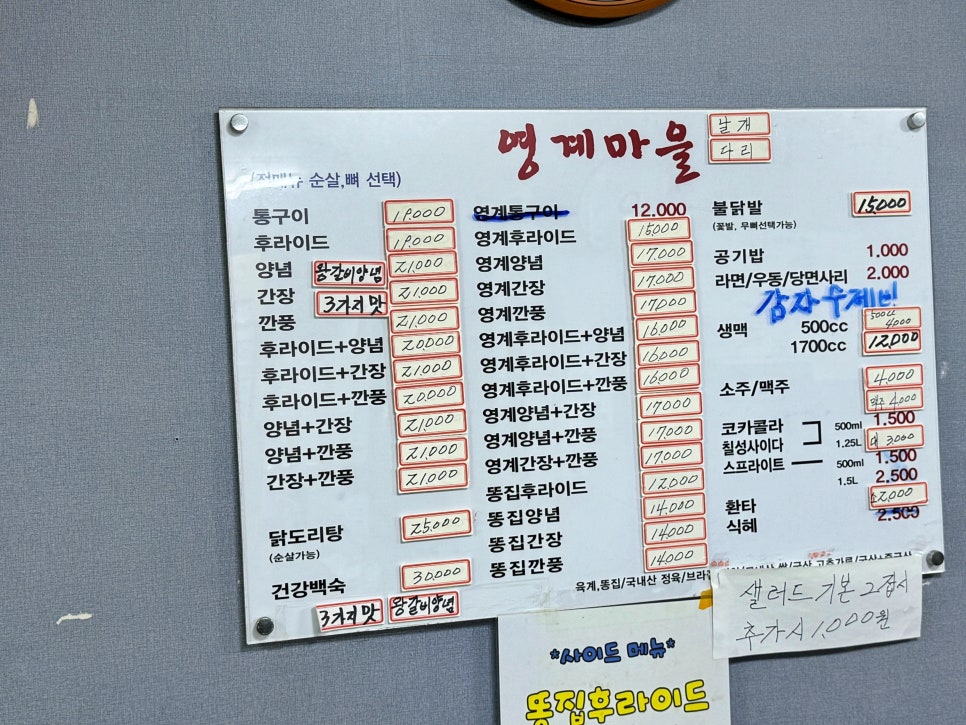 영계마을
날개
다리
(전메뉴 순살,뼈 선택)
통구이 19,000
후라이드 19,000
양념 왕갈비양념 21,000
간장 3가지맛 21,000
깐풍 21,000
후라이드+양념 20,000
후라이드+간장 21,000
후라이드+깐풍 20,000
양념+간장 21,000
양념+깐풍 21,000
간장+깐풍 21,000
닭도리탕 25,000
(순살가능)
건강백숙 30,000
3가지맛 왕갈비양념
영계통구이 12.000
영계후라이드 15,000
영계양념 17,000
영계간장 17,000
영계깐풍 17,000
영계후라이드+양념 16,000
영계후라이드+간장 16,000
영계후라이드+깐풍 16,000
영계양념+간장 17,000
영계양념+깐풍 17,000
영계간장+깐풍 17,000
똥집후라이드 12,000
똥집양념 14,000
똥집간장 14,000
똥집깐풍 14,000
불닭발 15,000
(꽃발, 무뼈선택가능)
공기밥 1.000
라면/우동/당면사리 2.000
감자수제비
생맥 500cc 500cc 4000
1700cc 12,000
소주/맥주 4,000
맥주 4,000
코카콜라 500ml 1.500
칠성사이다 1.25L 대 3,000
스프라이트 500ml 1.500
1.5L 2.500
환타 2,000
식혜 2.500
육계,똥집/국내산 정육/브라질
샐러드 기본 2접시
추가시 1,000원
*사이드 메뉴*
똥집후라이드